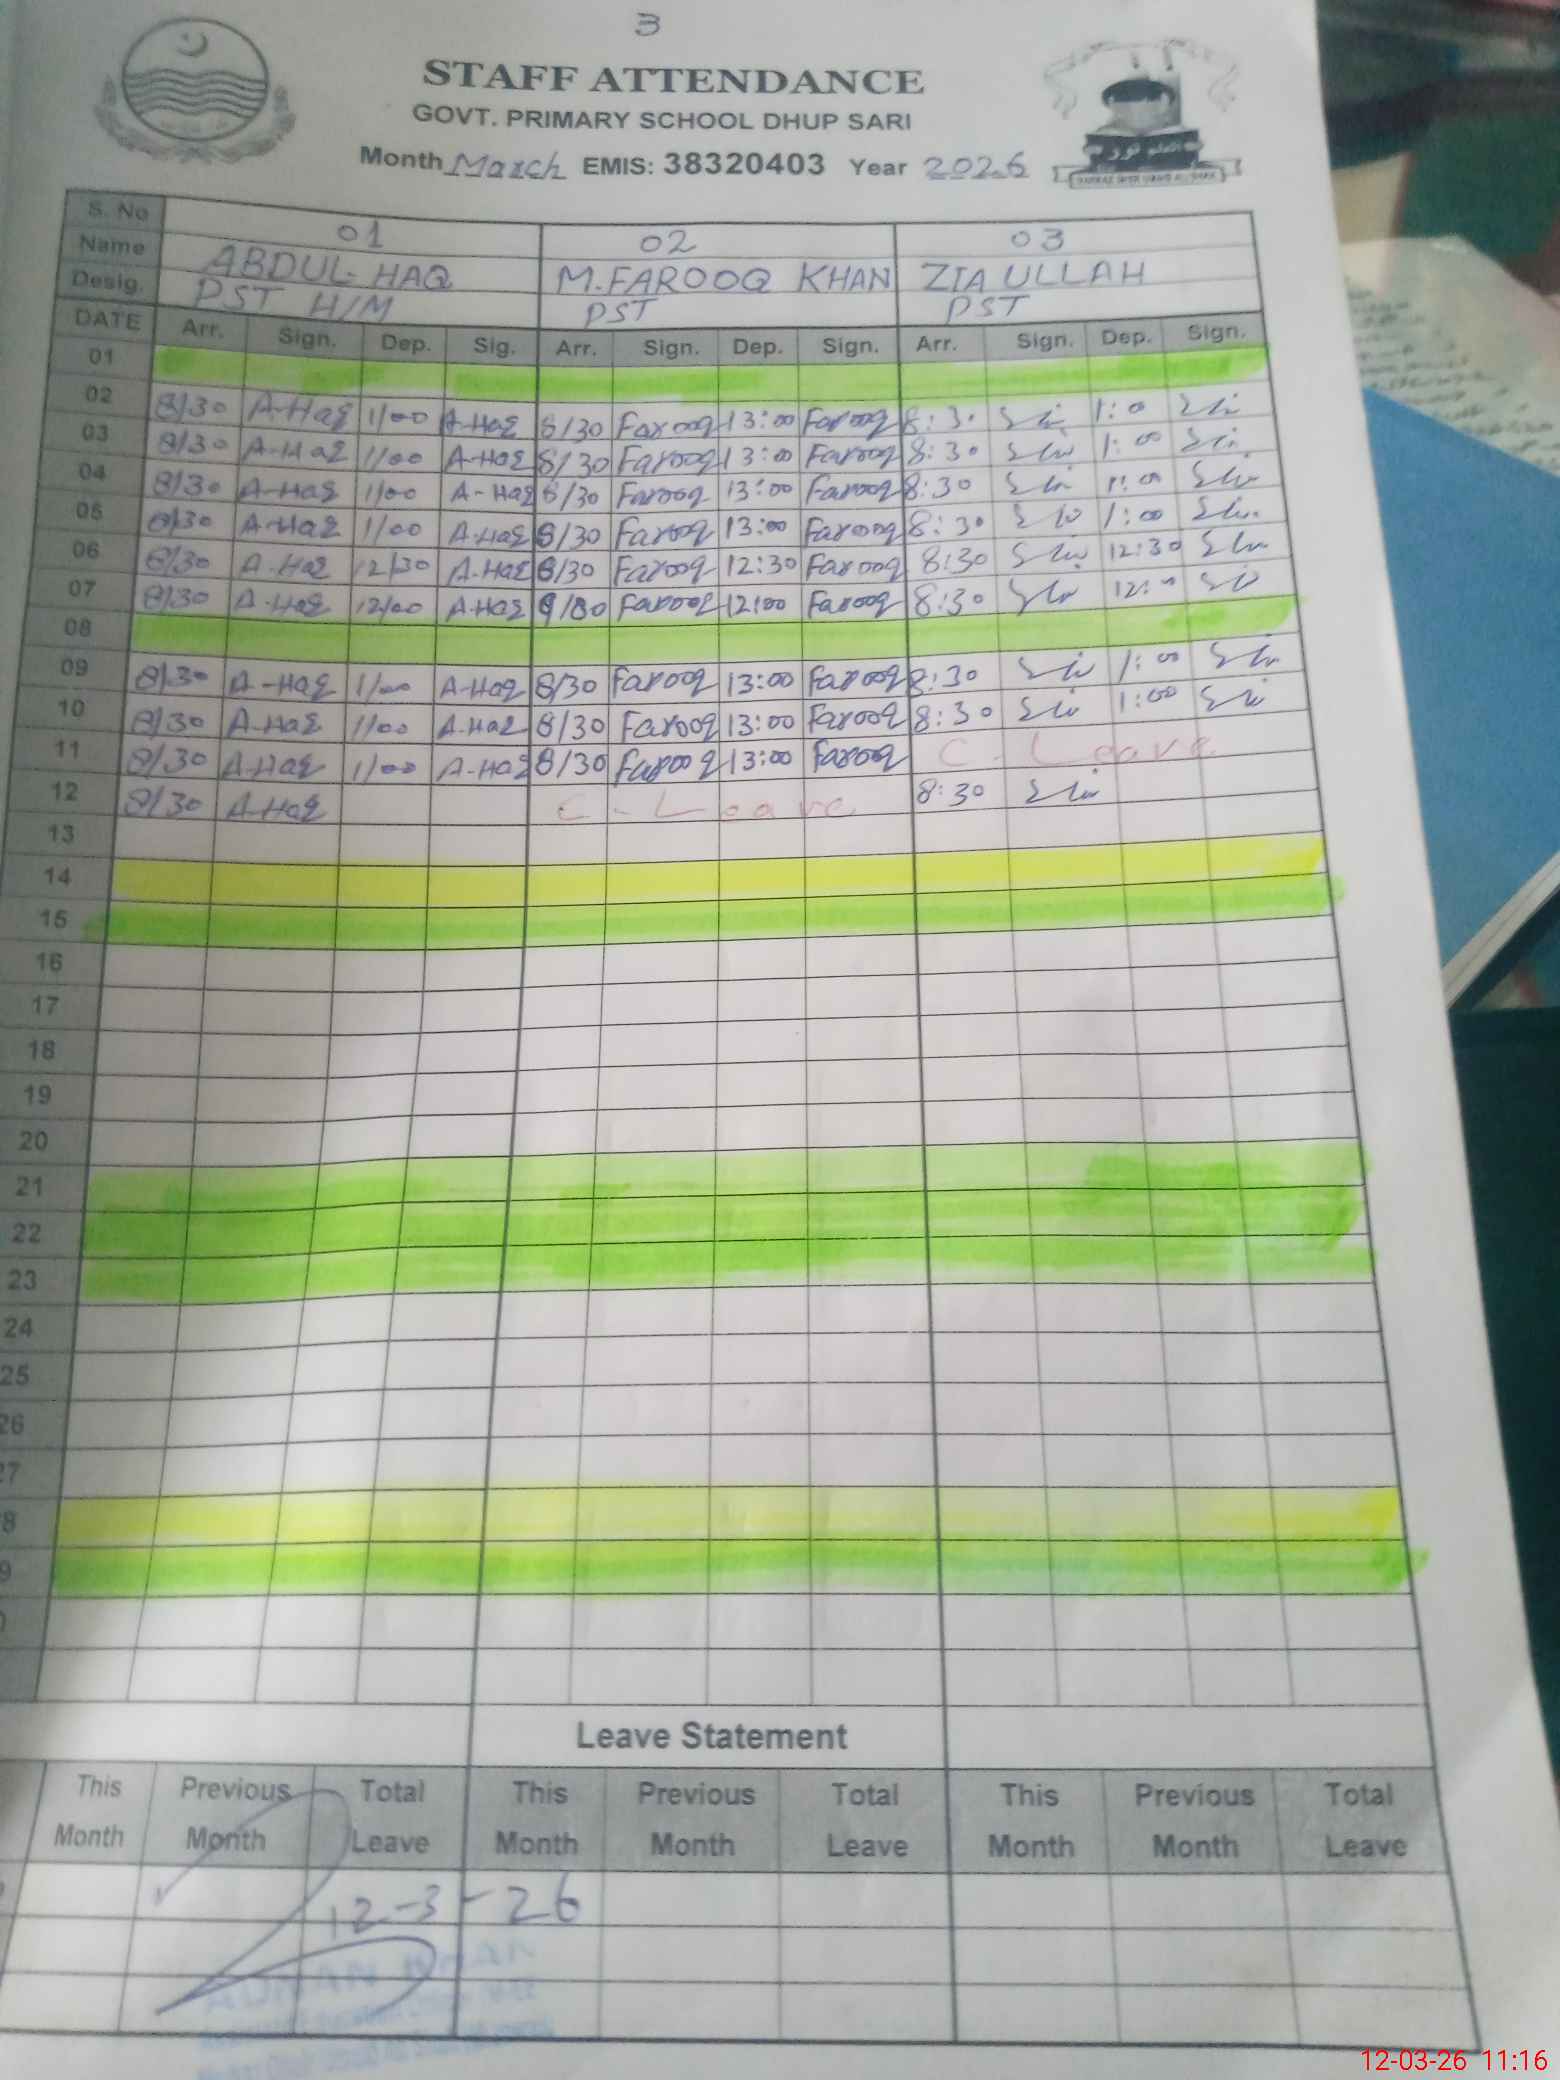 3
STAFF ATTENDANCE
GOVT. PRIMARY SCHOOL DHUP SARI
Month March EMIS: 38320403 Year 2026
S. No 01 02 03
Name ABDUL HAQ M. FAROOQ KHAN ZIA ULLAH
Desig. PST H/M PST PST
DATE Arr. Sign. Dep. Sig. Arr. Sign. Dep. Sign. Arr. Sign. Dep. Sign.
01
02 8/30 A-Haq 1/00 A-Haq 8/30 Farooq 13:00 Farooq 8:30 1:0
03 8/30 A-Haq 1/00 A-Haq 8/30 Farooq 13:00 Farooq 8:30 1:00
04 8/30 A-Haq 1/00 A-Haq 8/30 Farooq 13:00 Farooq 8:30
05 8/30 A-Haq 1/00 A-Haq 8/30 Farooq 13:00 Farooq 8:30 1:00
06 8/30 A-Haq 12/30 A-Haq 8/30 Farooq 12:30 Farooq 8:30 12:30
07 8/30 A-Haq 12/00 A-Haq Farooq 12:00 Farooq 8:30
08
09 8/30 A-Haq 1/00 A-Haq 8/30 Farooq 13:00 Farooq 8:30 1:00
10 8/30 A-Haq 1/00 A-Haq 8/30 Farooq 13:00 Farooq 8:30 1:00
11 8/30 A-Haq 1/00 A-Haq 8/30 Farooq 13:00 Farooq C-Leave
12 8/30 A-Haq C-Leave 8:30
13
14
15
16
17
18
19
20
21
22
23
24
25
26
27
8
9
Leave Statement
This Month Previous Month Total Leave This Month Previous Month Total Leave This Month Previous Month Total Leave
12-3-26
12-03-26 11:16